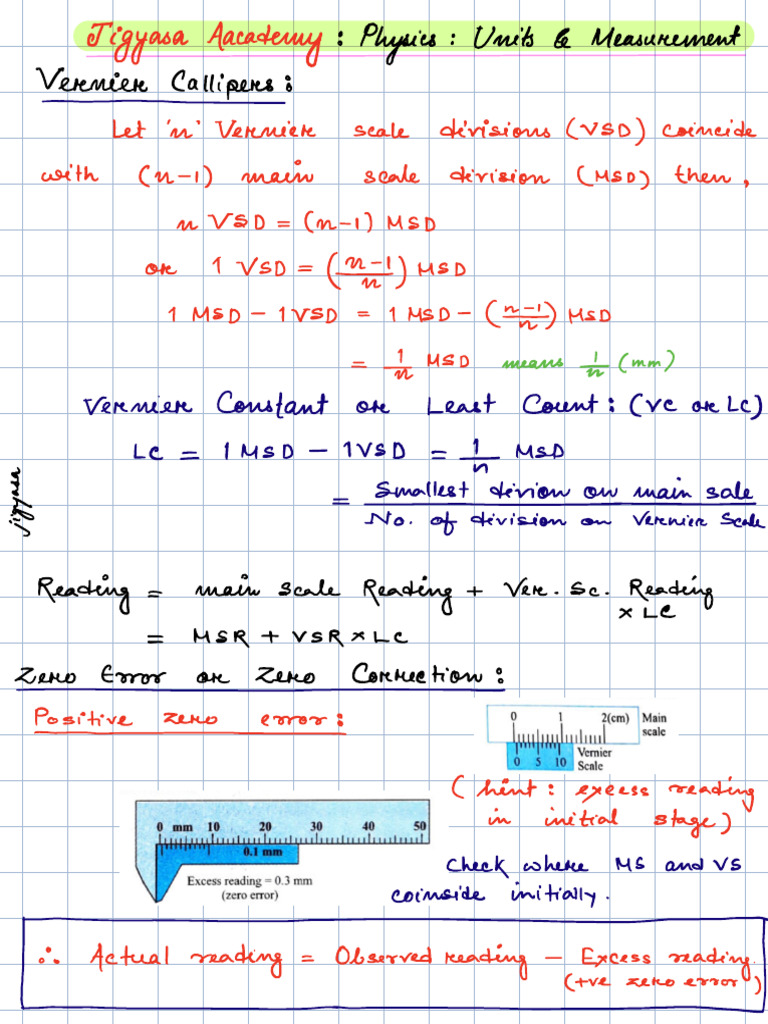 Jigyasa Aacademy : Physics : Units & Measurement
Vernier Callipers :
Let 'n' Vernier scale divisions (VSD) coincide
with (n-1) main scale division (MSD) then,
n VSD = (n-1) MSD
or 1 VSD = (n-1/n) MSD
1 MSD - 1 VSD = 1 MSD - (n-1/n) MSD
= 1/n MSD means 1/n (mm)
Vernier Constant or Least Count : (VC or LC)
LC = 1 MSD - 1 VSD = 1/n MSD
= Smallest divion on main sale
No. of division on Vernier Scale
Jigyasa
Reading = main scale Reading + Ver. Sc. Reading
× LC
= MSR + VSR × LC
Zero Error or Zero Correction :
Positive zero error :
0 1 2(cm) Main
scale
Vernier
0 5 10 Scale
(hint : excess reading
in initial stage)
0 mm 10 20 30 40 50
0.1 mm
Excess reading = 0.3 mm
(zero error)
Check where MS and VS
coinside initially.
∴ Actual reading = Observed reading - Excess reading.
(+ve zero error)